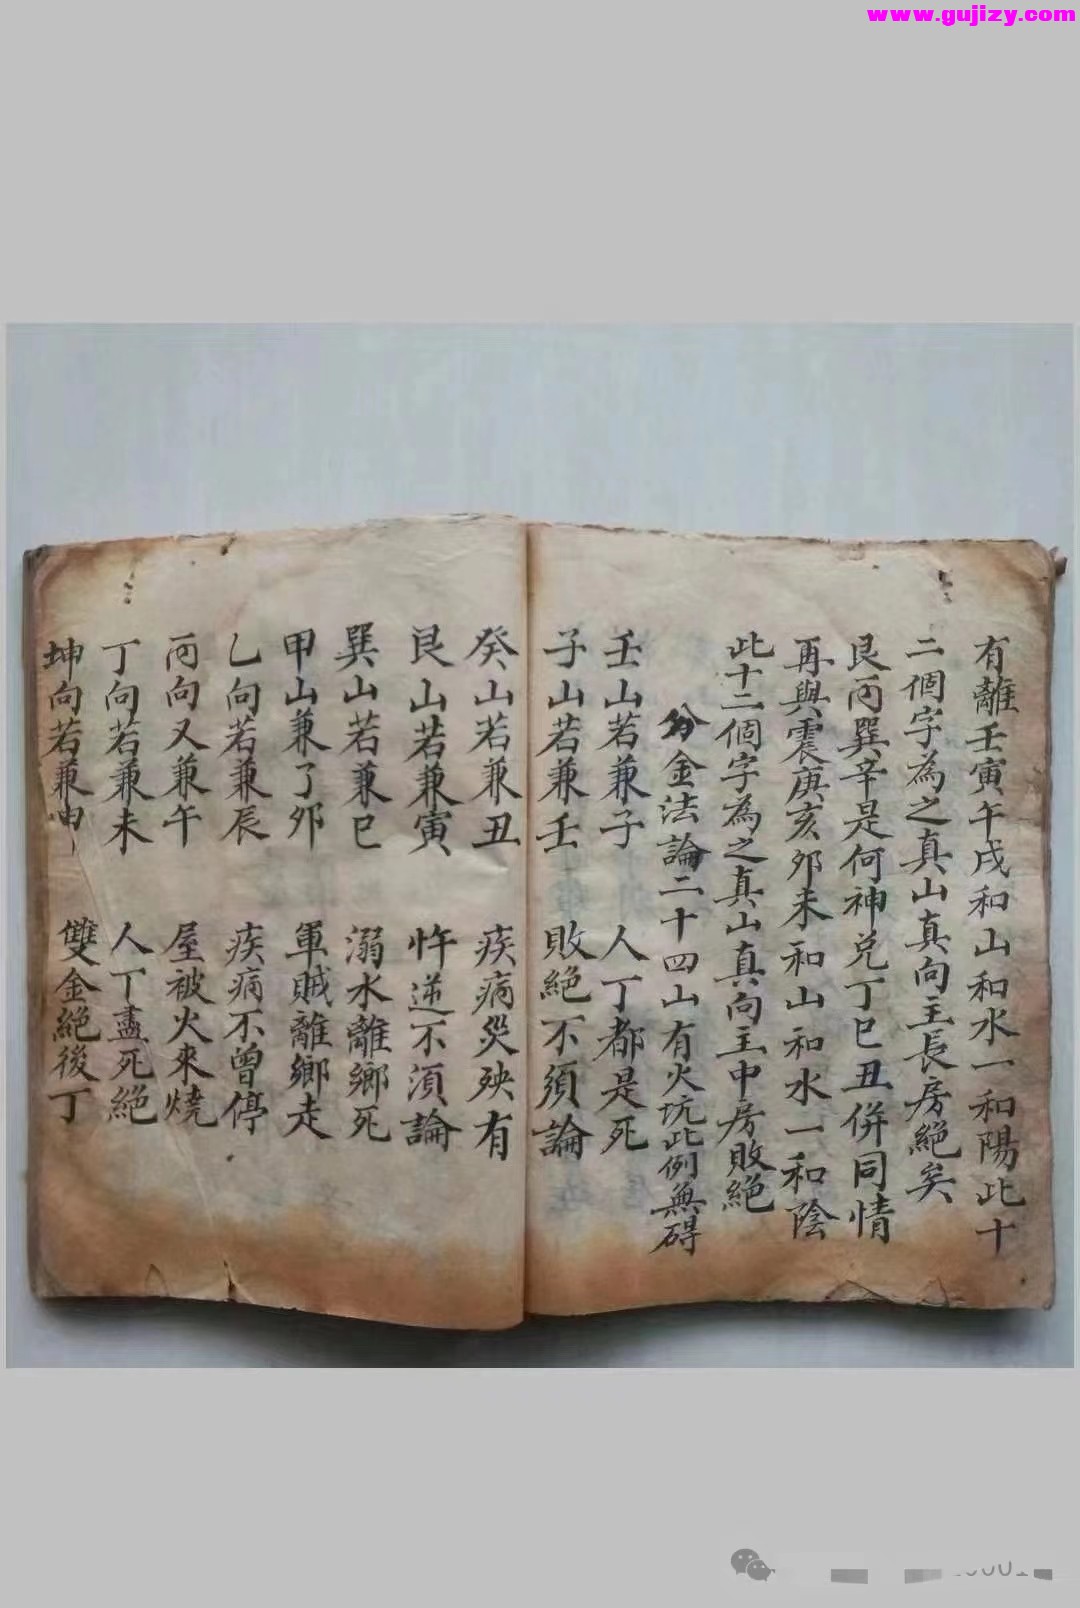 www.gujizy.com
有離壬寅午戌和山和水一和陽此十
二個字為之真山真向主長房絕矣
艮丙巽辛是何神兌丁巳丑併同情
再與震庚亥夘未和山和水一和陰
此十二個字為之真山真向主中房敗絕
分金法論二十四山有火坑此例無碍
壬山若兼子 人丁都是死
子山若兼壬 敗絕不須論
癸山若兼丑 疾病災殃有
艮山若兼寅 忤逆不須論
巽山若兼巳 溺水離鄉死
甲山兼了夘 軍賊離鄉走
乙向若兼辰 疾病不曾停
丙向又兼午 屋被火來燒
丁向若兼未 人丁盡死絕
坤向若兼申 雙金絕後丁